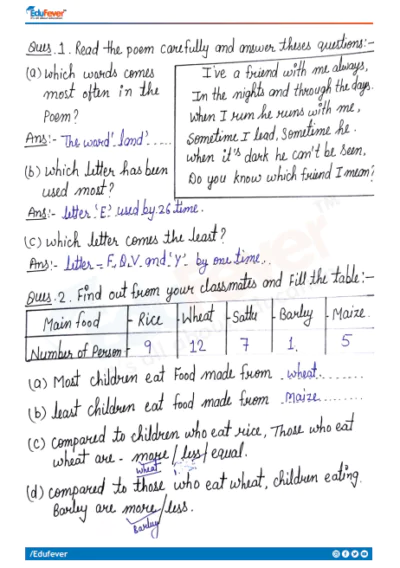 EduFever
Ques.1. Read the poem carefully and answer theses questions:-
(a) which words comes
most often in the
Poem?
Ans:- The word 'land'......
(b) which letter has been
used most?
Ans:- letter 'E' used by 26 time.
(c) which letter comes the least?
Ans:- letter = F, B, V and 'Y' - by one time..
I've a friend with me always,
In the nights and through the days.
When I run he runs with me,
Sometime I lead, Sometime he.
when it's dark he can't be seen,
Do you know which friend I mean?
Ques.2. Find out from your classmates and Fill the table:-
Main food - Rice - Wheat - Sattu - Barley - Maize
Number of Person - 9 12 7 1. 5
(a) Most children eat Food made from .wheat.........
(b) least children eat food made from .Maize........
(c) compared to children who eat rice, Those who eat
wheat are - more / less / equal.
wheat
(d) compared to those who eat wheat, children eating.
Barley are more / less.
Barley
/Edufever